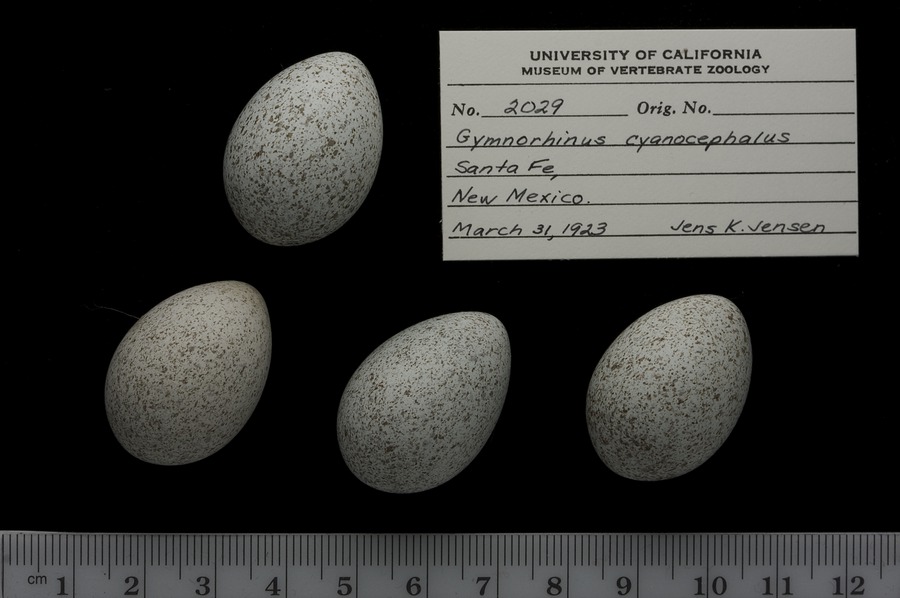 UNIVERSITY OF CALIFORNIA
MUSEUM OF VERTEBRATE ZOOLOGY
No. 2029 Orig. No.
Gymnorhinus cyanocephalus
Santa Fe,
New Mexico.
March 31, 1923 Jens K. Jensen
cm 1 2 3 4 5 6 7 8 9 10 11 12